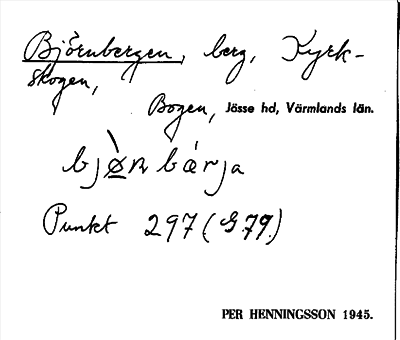 Björnbergen, berg, Kyrk-
skogen,
Bogen, Jösse hd, Värmlands län.
bjø̀n bǽrja
Punkt 297 (G.79.)
PER HENNINGSSON 1945.